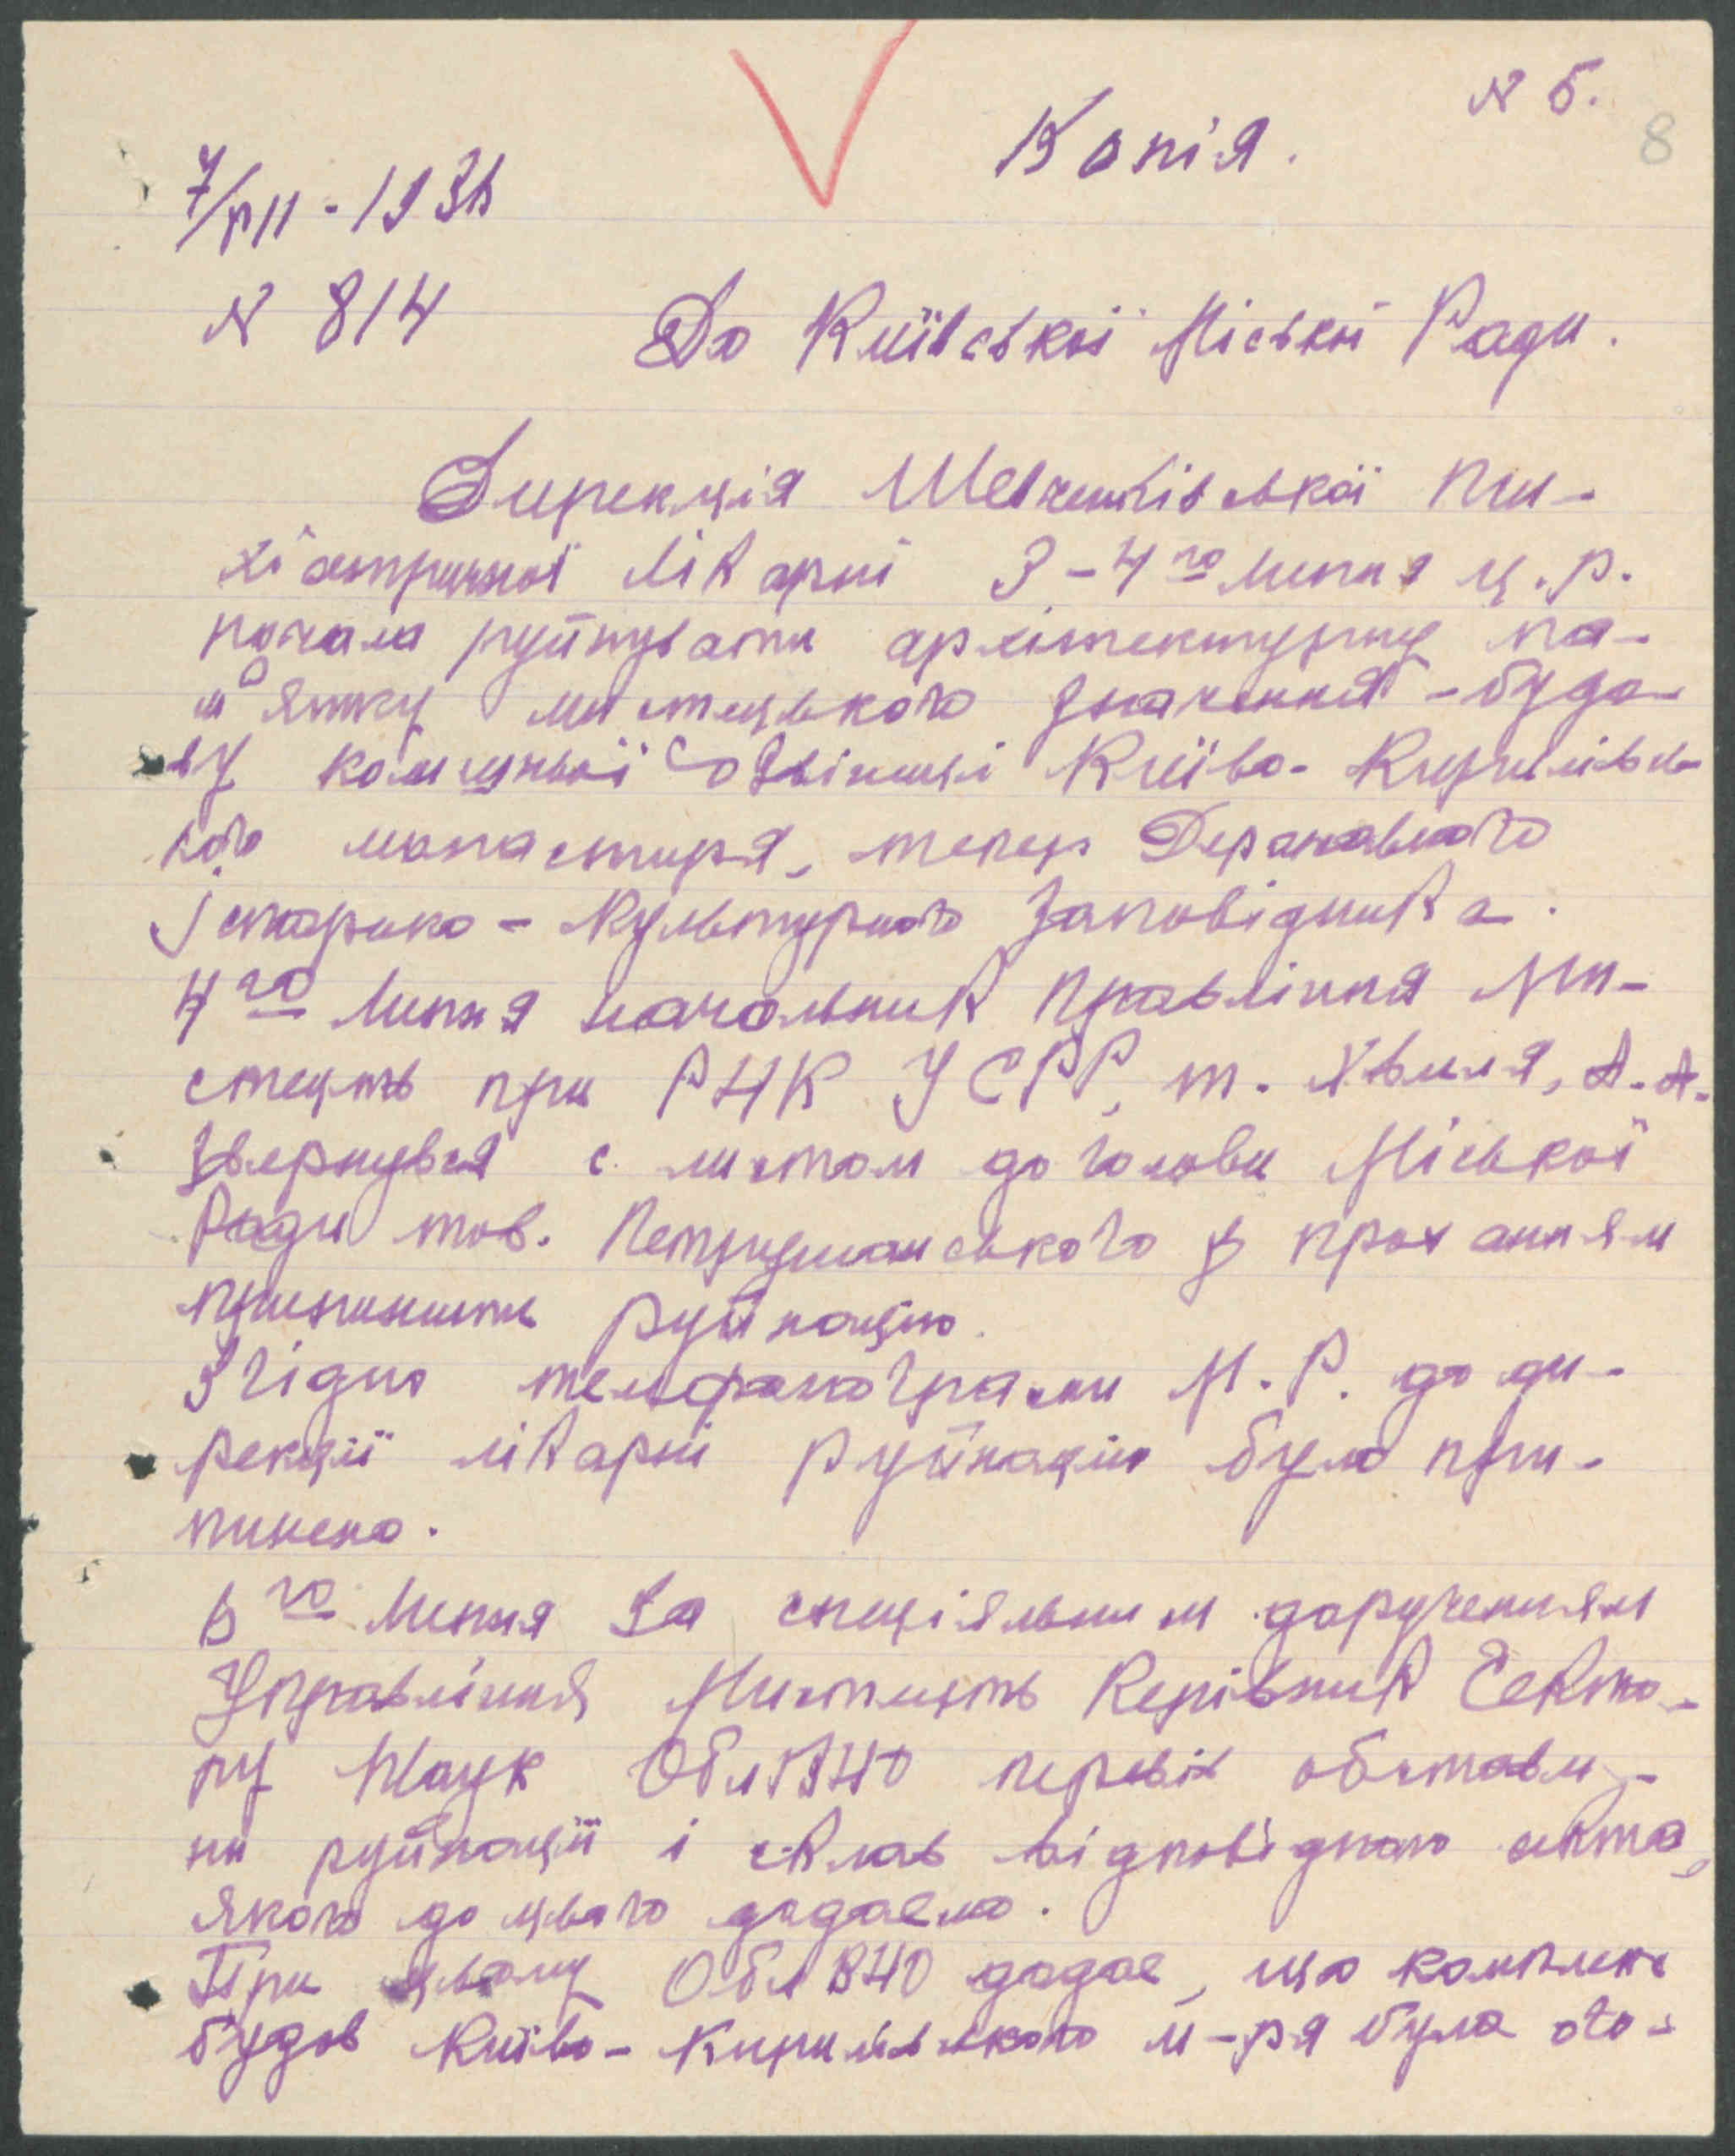 N 5.
8
Копія.
7/VII - 1936
N 814
До Київської Міської Ради.
Дирекція Шевченківської пси-
хіатричної лікарні 3-4го липня ц.р.
почала руйнувати архітектурну па-
м'ятку мистецького значення - будо-
ву колишньої дзвіниці Київо-Кирилівсь-
кого монастиря, тепер Державного
Історико-Культурного Заповідника.
4го липня начальник Правління Ми-
стецтв при РНК УСРР, т. Хвиля, А.А.
звернувся с листом до голови Міської
Ради тов. Петрушанського з проханням
припинити руйнацію.
Згідно телефонограми М.Р. до ди-
рекції лікарні руйнацію було при-
пинено.
5го липня за спеціяльним дорученням
Управління Мистецтв Керівник Секто-
ру Наук ОблВНО перевів обстави-
ни руйнації і склав відповідного акта,
якого до цього додаємо.
При цьому ОблВНО додає, що комплекс
будов Київо-Кирилівського м-ря була ого-